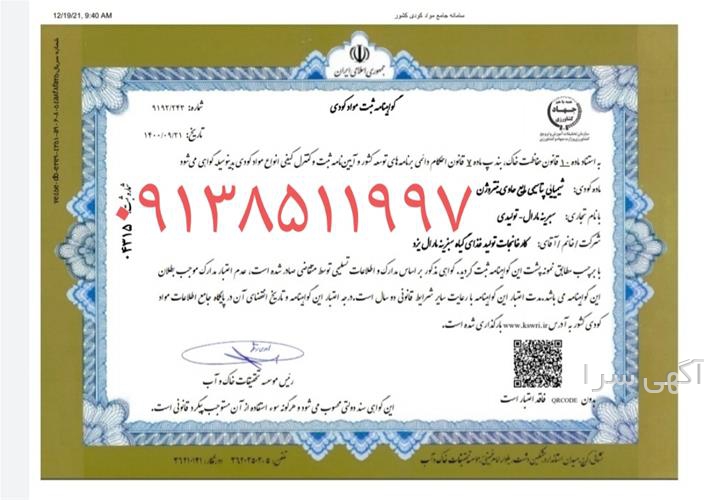 12/19/21, 9:40 AM
سامانه جامع مواد کودی کشور
جمهوری اسلامی ایران
گواهینامه ثبت مواد کودی
شماره: ۹۱۹۲/۲۴۳
تاریخ: ۱۴۰۰/۰۹/۲۱
جهاد
کشاورزی
به استناد ماده ۱۰ قانون حفاظت خاک، بند پ ماده ۷ قانون احکام دائمی برنامه های توسعه کشور و آیین نامه ثبت و کنترل کیفی انواع مواد کودی بدینوسیله گواهی می شود
ماده کودی: شیمیایی پتاسیمی مایع حاوی نیتروژن
شماره ثبت: ۰۴۳۱۵
۰۹۱۳۸۵۱۱۹۹۷
با نام تجاری: سبزینه مارال - تولیدی
شرکت / خانم / آقای: کارخانجات تولید غذای گیاه سبزینه مارال یزد
با برچسب مطابق نمونه پشت این گواهینامه ثبت گردید. گواهی مذکور بر اساس مدارک و اطلاعات تسلیمی توسط متقاضی صادر شده است، عدم اعتبار مدارک موجب بطلان
این گواهینامه می باشد. مدت اعتبار این گواهینامه با رعایت سایر شرایط قانونی دو سال است. درجه اعتبار این گواهینامه و تاریخ انقضای آن در پایگاه جامع اطلاعات مواد
کودی کشور به آدرس www.kswri.ir بارگذاری شده است.
رئیس موسسه تحقیقات خاک و آب
آگهی سرا
بدون QRCODE فاقد اعتبار است
این گواهی سند دولتی محسوب می شود و هرگونه سوء استفاده از آن مستوجب پیگرد قانونی است.
موسسه تحقیقات خاک و آب
تلفن: ۵-۳۶۲۰۲۵۰۲ دورنگار: ۳۶۲۱۰۱۲۱